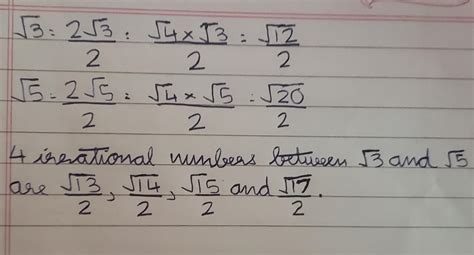 √3 = 2√3/2 = √4×√3/2 = √12/2
√5 = 2√5/2 = √4×√5/2 = √20/2
4 irrational numbers between √3 and √5
are √13/2, √14/2, √15/2 and √17/2.